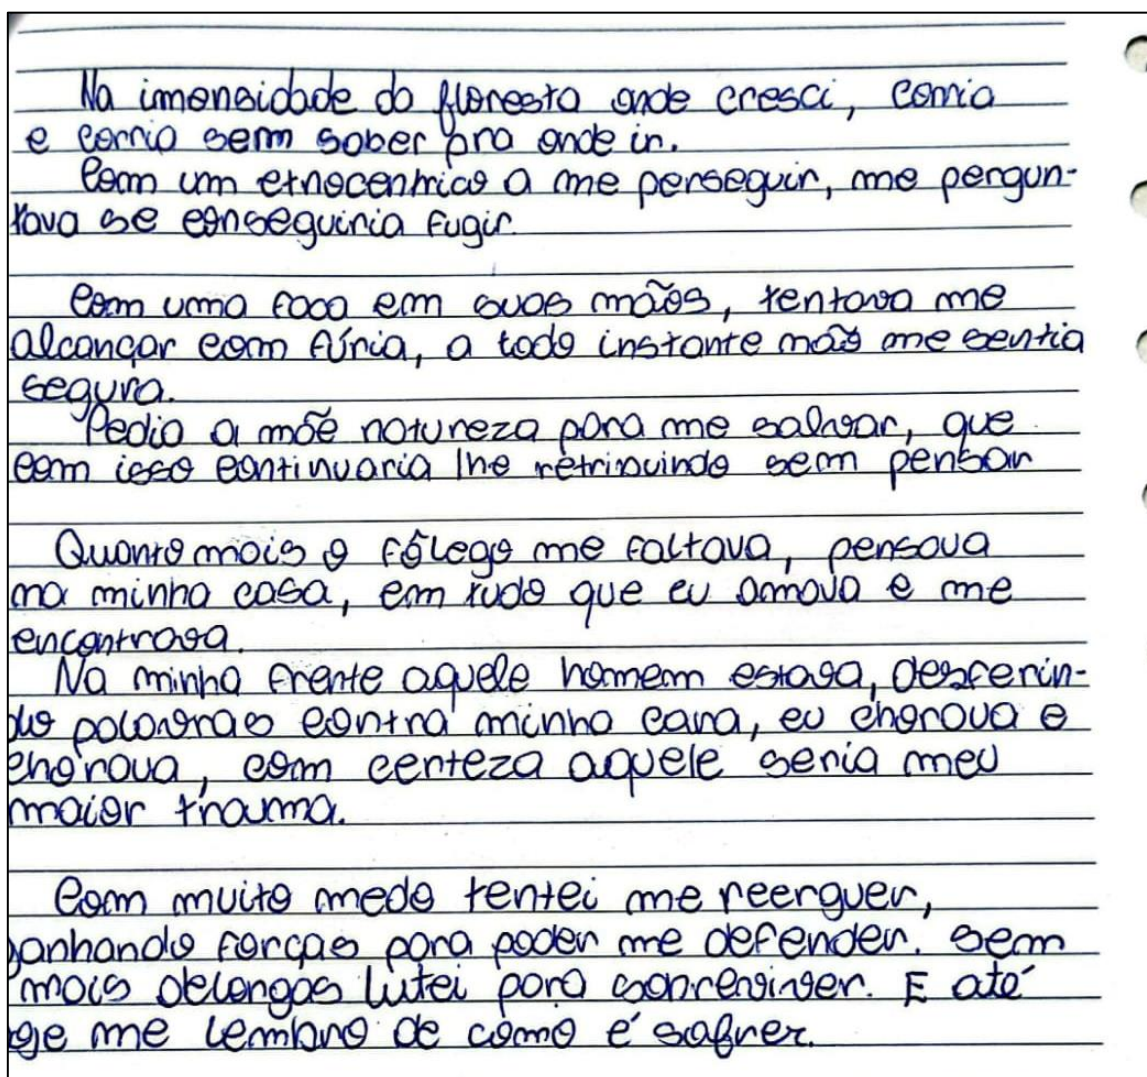 Na imensidade da floresta onde cresci, corria
e corria sem saber pra onde ir.
Com um etnocentrico a me perseguir, me pergun-
tava se conseguiria fugir.
Com uma faca em suas mãos, tentava me
alcançar com fúria, a todo instante não me sentia
segura.
Pedia a mãe natureza para me salvar, que
com isso continuaria lhe retribuindo sem pensar
Quanto mais o fôlego me faltava, pensava
na minha casa, em tudo que eu amava e me
encontrava.
Na minha frente aquele homem estava, desferin-
do palavras contra minha cara, eu chorava e
chorava, com certeza aquele seria meu
maior trauma.
Com muito medo tentei me reerguer,
ganhando forças para poder me defender. Sem
mais delongas lutei para sobreviver. E até
oje me lembro de como é sofrer.